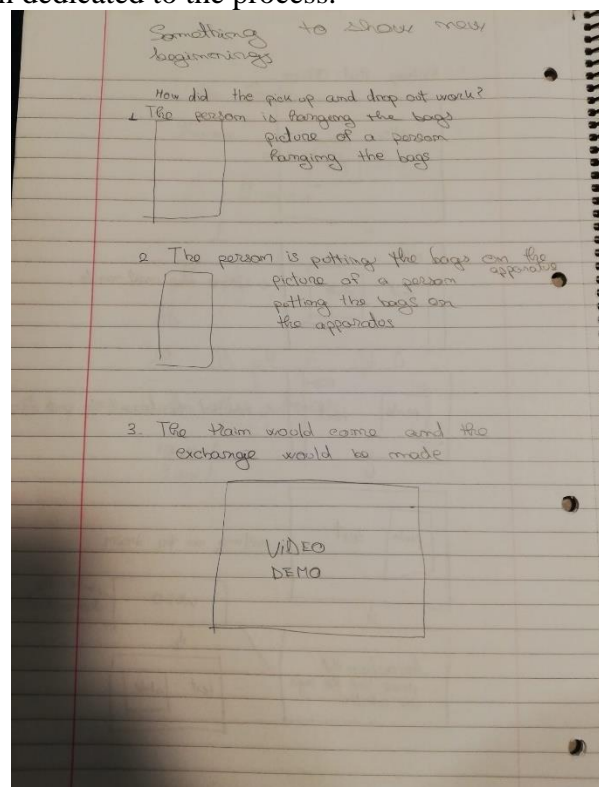 n dedicated to the process.
Something to show new
beginnenings
How did the pick up and drop out work?
1 The person is hanging the bags
picture of a person
hanging the bags
2 The person is putting the bags on the
apparatus
picture of a person
putting the bags on
the apparatos
3. The train would come and the
exchange would be made
VIDEO
DEMO